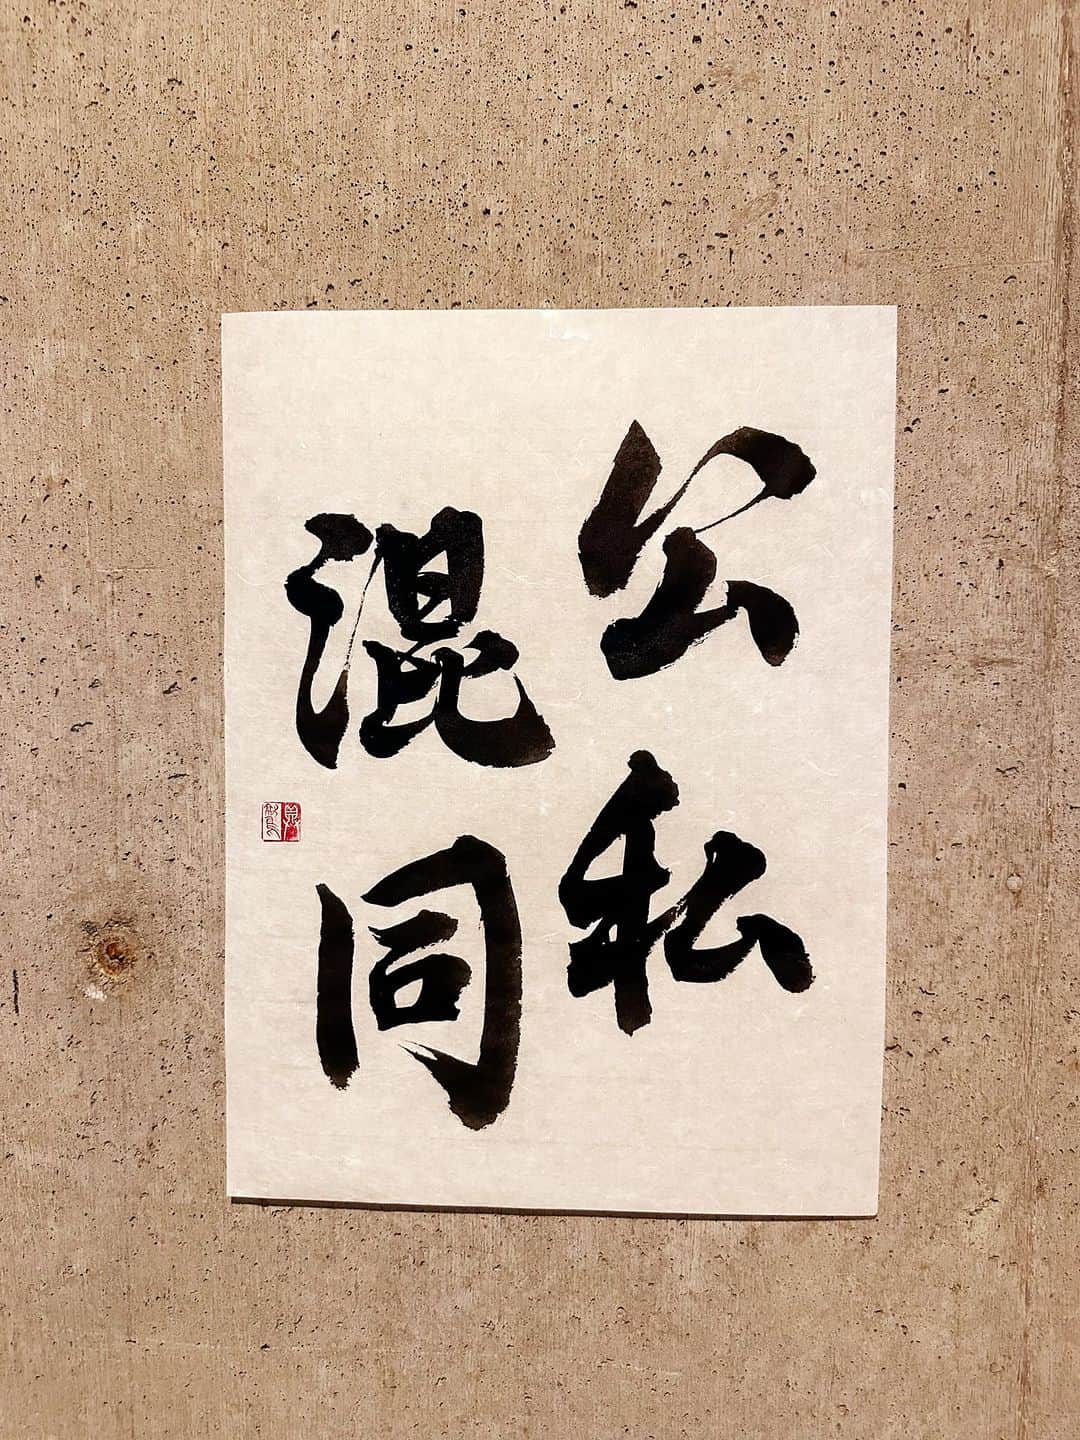 公私
混同